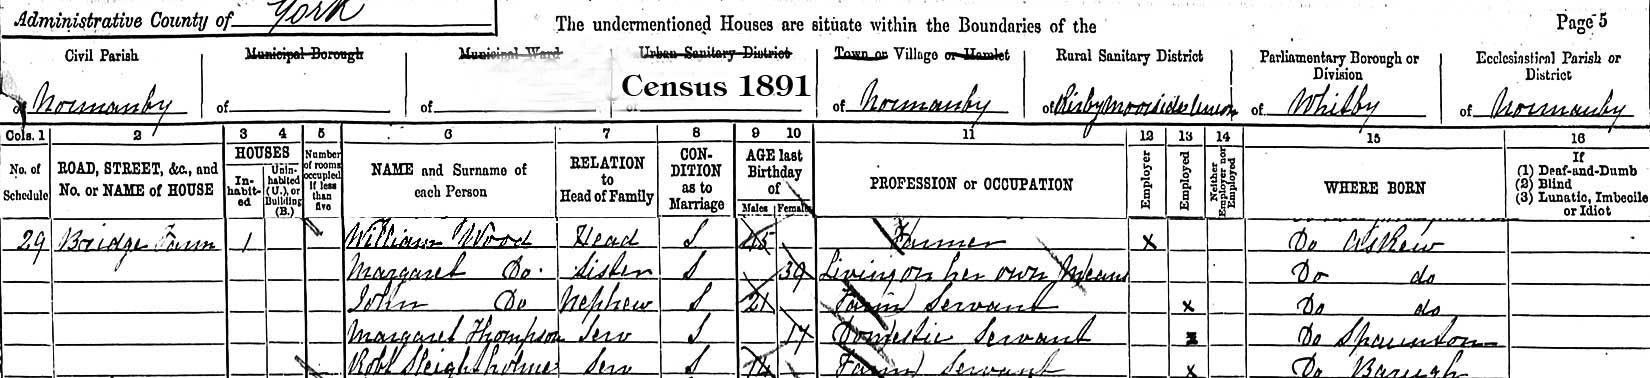 Administrative County of York
The undermentioned Houses are situate within the Boundaries of the
Page 5
Civil Parish
Municipal Borough
Municipal Ward
Urban Sanitary District
Town or Village or Hamlet
Rural Sanitary District
Parliamentary Borough or Division
Ecclesiastical Parish or District
of Normanby
of
of
of
Census 1891
of Normanby
of Kirbymoorside Union
of Whitby
of Normanby
Cols. 1 2 3 4 5 6 7 8 9 10 11 12 13 14 15 16
No. of Schedule
ROAD, STREET, &c., and No. or NAME of HOUSE
HOUSES
Inhabited
Uninhabited (U.), or Building (B.)
Number of rooms occupied if less than five
NAME and Surname of each Person
RELATION to Head of Family
CONDITION as to Marriage
AGE last Birthday of
Males Females
PROFESSION or OCCUPATION
Employer
Employed
Neither Employer nor Employed
WHERE BORN
If
(1) Deaf-and-Dumb
(2) Blind
(3) Lunatic, Imbecile or Idiot
29 Bridge Farm 1 William Wood Head S 45 Farmer X Do Askew
Margaret Do. Sister S 39 Living on her own Means Do do
John Do Nephew S 21 Farm Servant X Do do
Margaret Thompson Serv S 17 Domestic Servant X Do Spaunton
Robt Sleightholme Serv S Farm Servant X Do Barugh